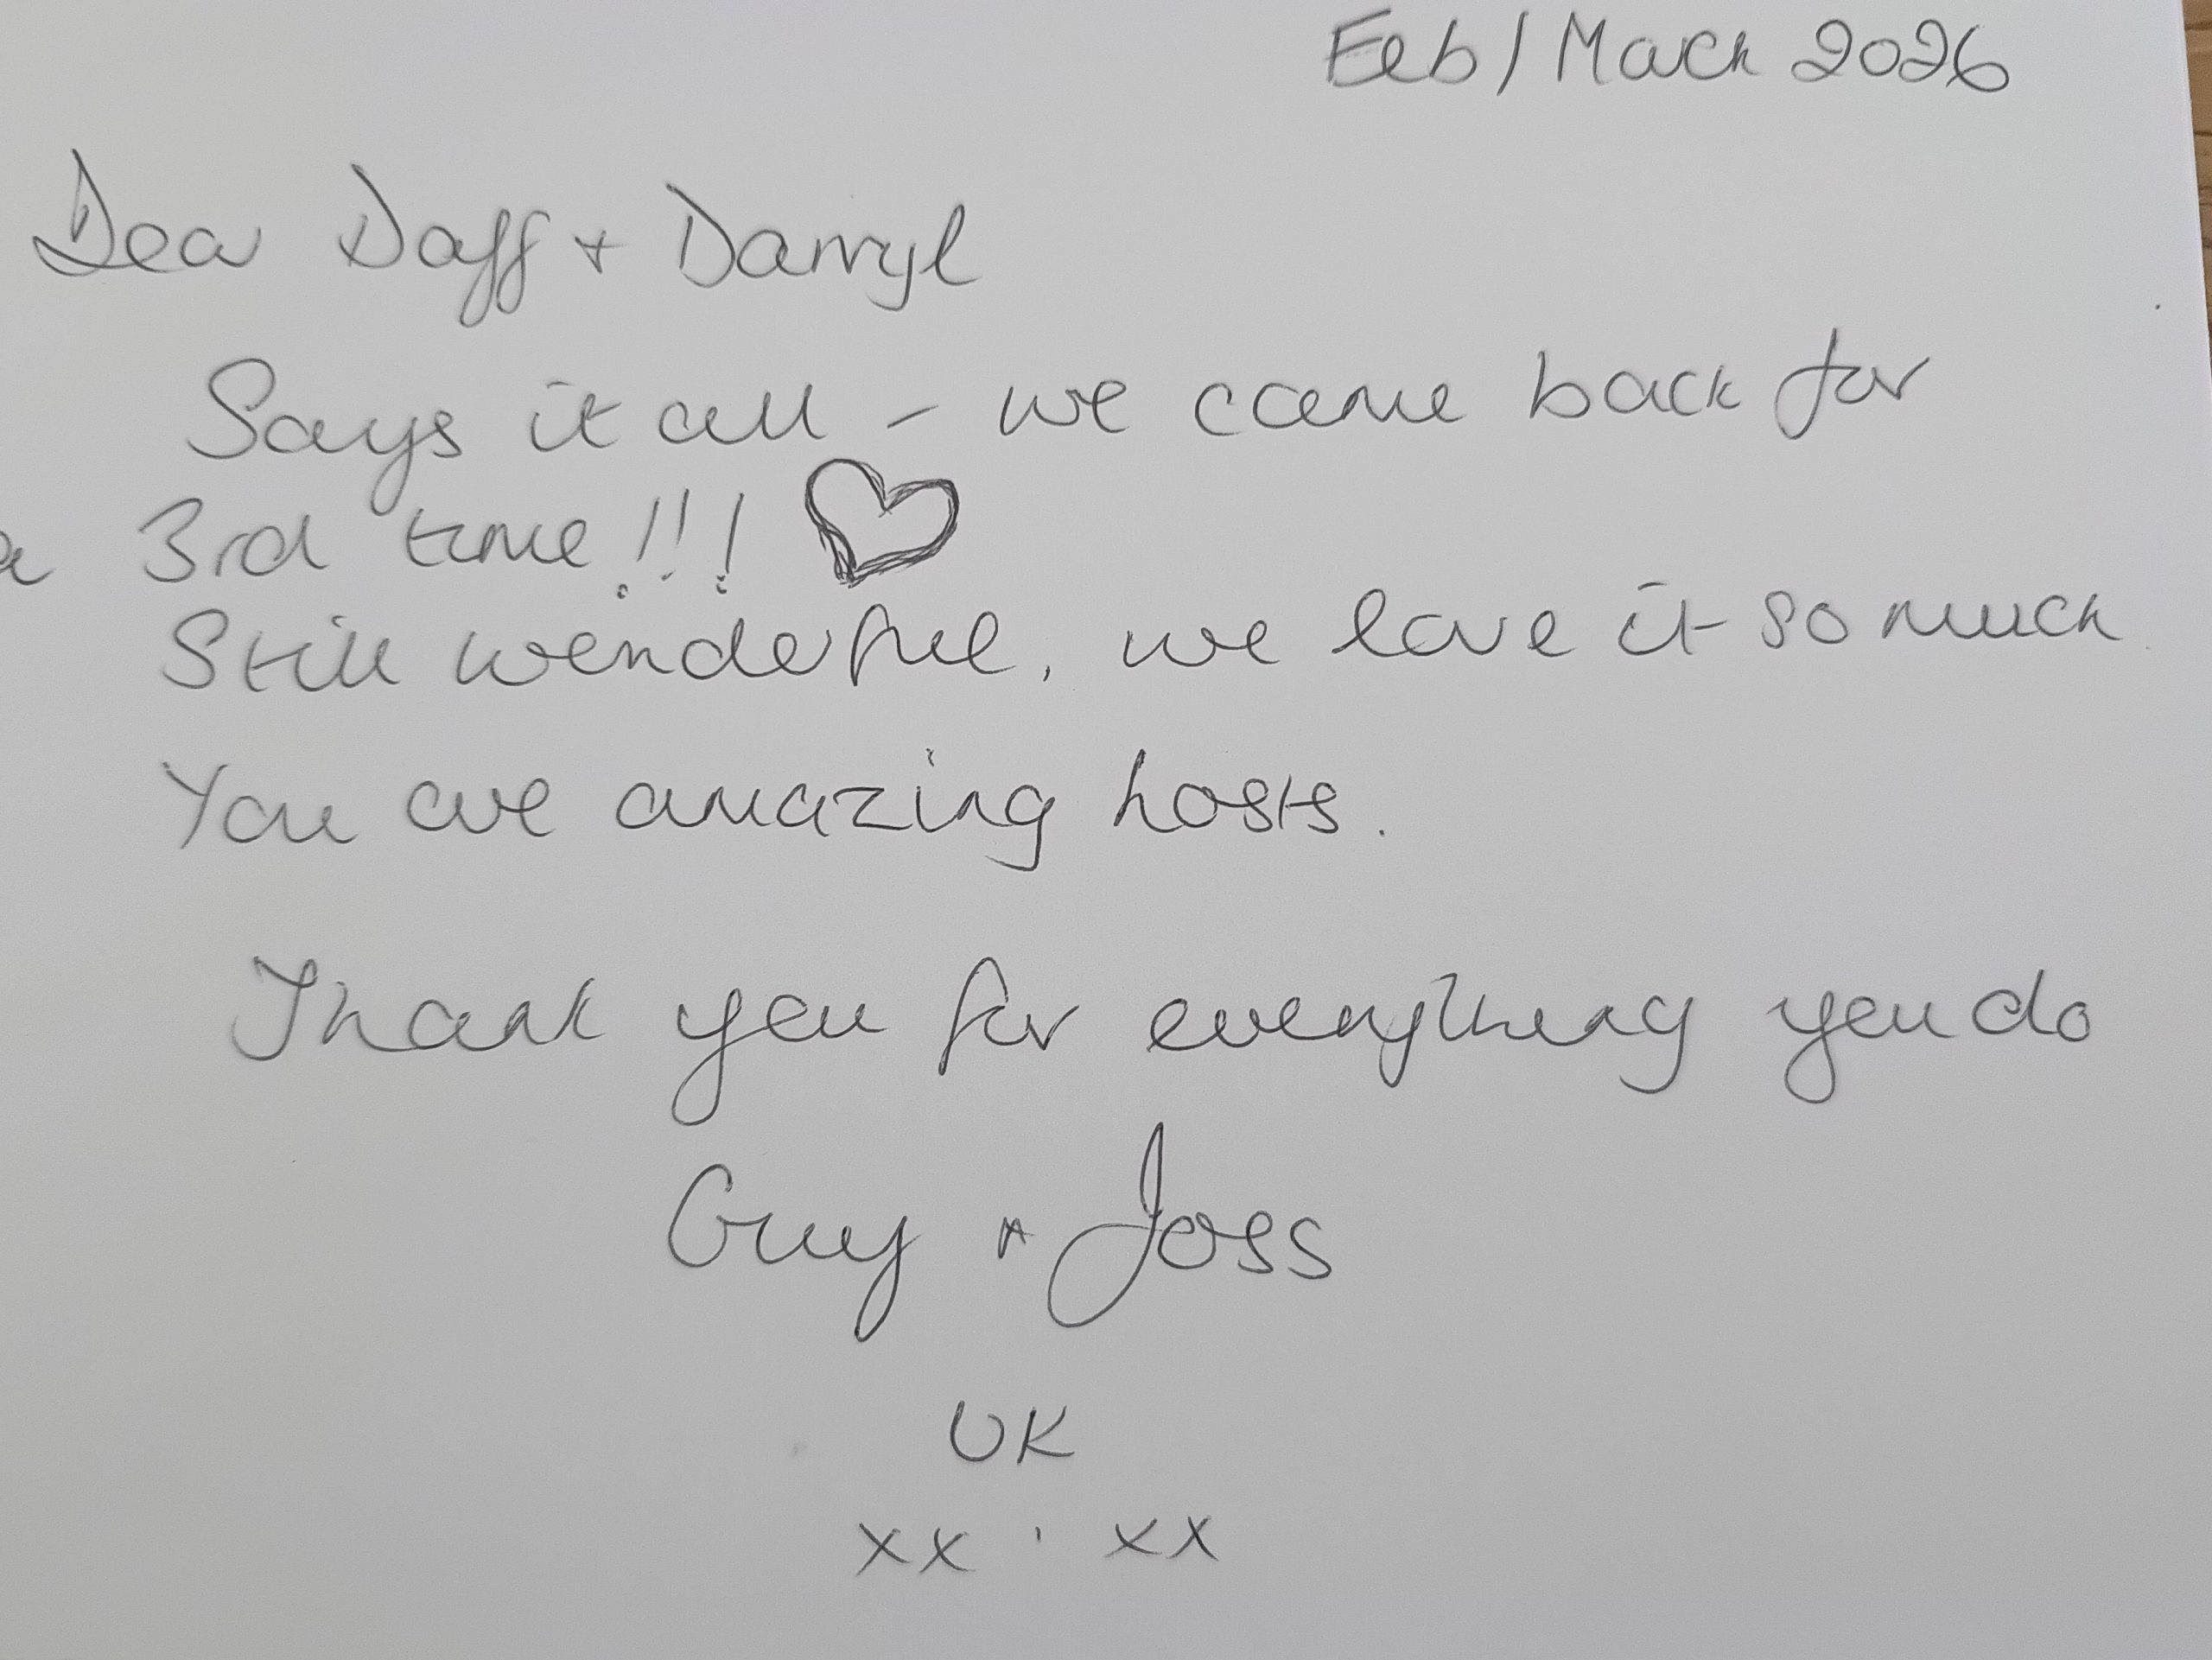 Feb/March 2026
Dear Daff + Darryl
Says it all - we came back for
a 3rd time!!! ♡
Still wonderful, we love it so much
You are amazing hosts.
Thank you for everything you do
Guy + Joss
UK
xx . xx